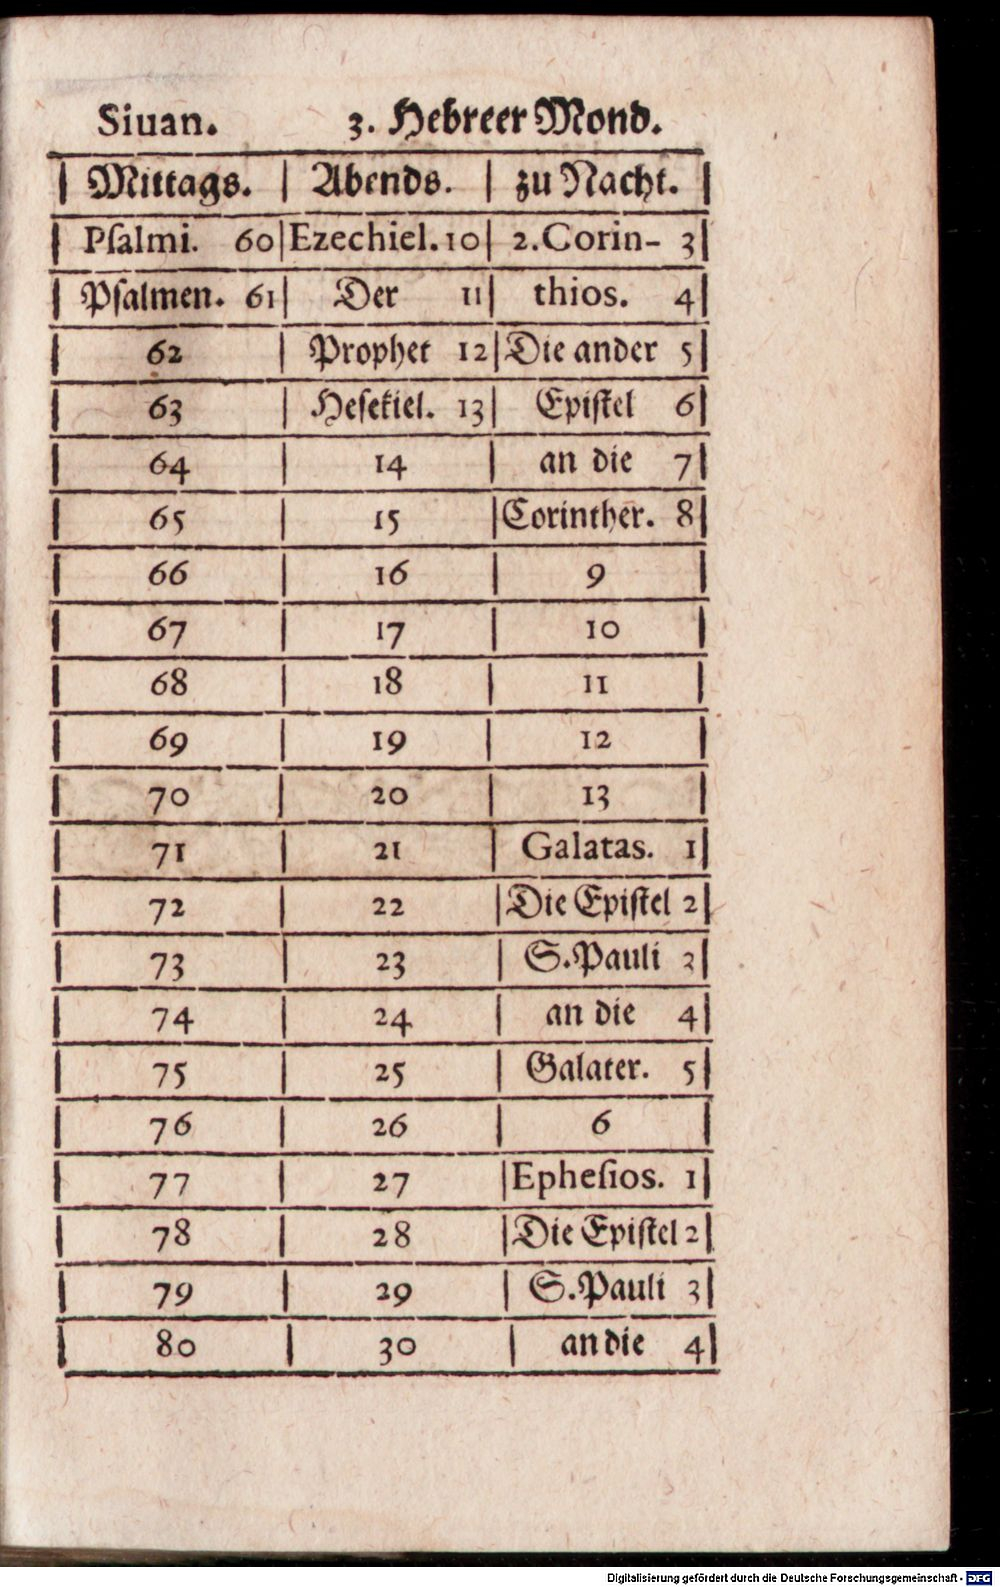 Siuan. 3. Hebreer Mond.
Mittags. | Abends. | zu Nacht.
Pſalmi. 60 | Ezechiel. 10 | 2. Corin- 3
Pſalmen. 61 | Der 11 | thios. 4
62 | Prophet 12 | Die ander 5
63 | Heſekiel. 13 | Epiſtel 6
64 | 14 | an die 7
65 | 15 | Corinther. 8
66 | 16 | 9
67 | 17 | 10
68 | 18 | 11
69 | 19 | 12
70 | 20 | 13
71 | 21 | Galatas. 1
72 | 22 | Die Epiſtel 2
73 | 23 | S. Pauli 3
74 | 24 | an die 4
75 | 25 | Galater. 5
76 | 26 | 6
77 | 27 | Epheſios. 1
78 | 28 | Die Epiſtel 2
79 | 29 | S. Pauli 3
80 | 30 | an die 4
Digitalisierung gefördert durch die Deutsche Forschungsgemeinschaft - DFG